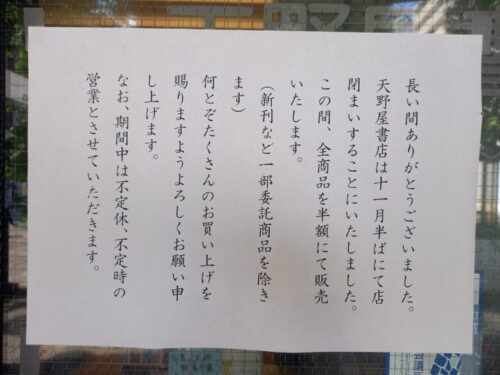 長い間ありがとうございました。
天野屋書店は十一月半ばにて店
閉まいすることにいたしました。
この間、全商品を半額にて販売
いたします。
（新刊など一部委託商品を除き
ます）
何とぞたくさんのお買い上げを
賜りますようよろしくお願い申
し上げます。
なお、期間中は不定休、不定時の
営業とさせていただきます。